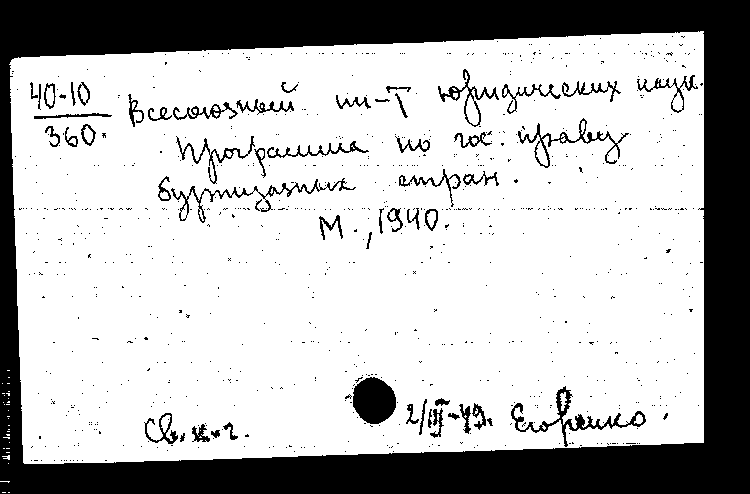 40-10
360.
Всесоюзный ин-т юридических наук.
Программа по гос. праву
буржуазных стран.
М., 1940.
2/III-49.
Св. к-г.